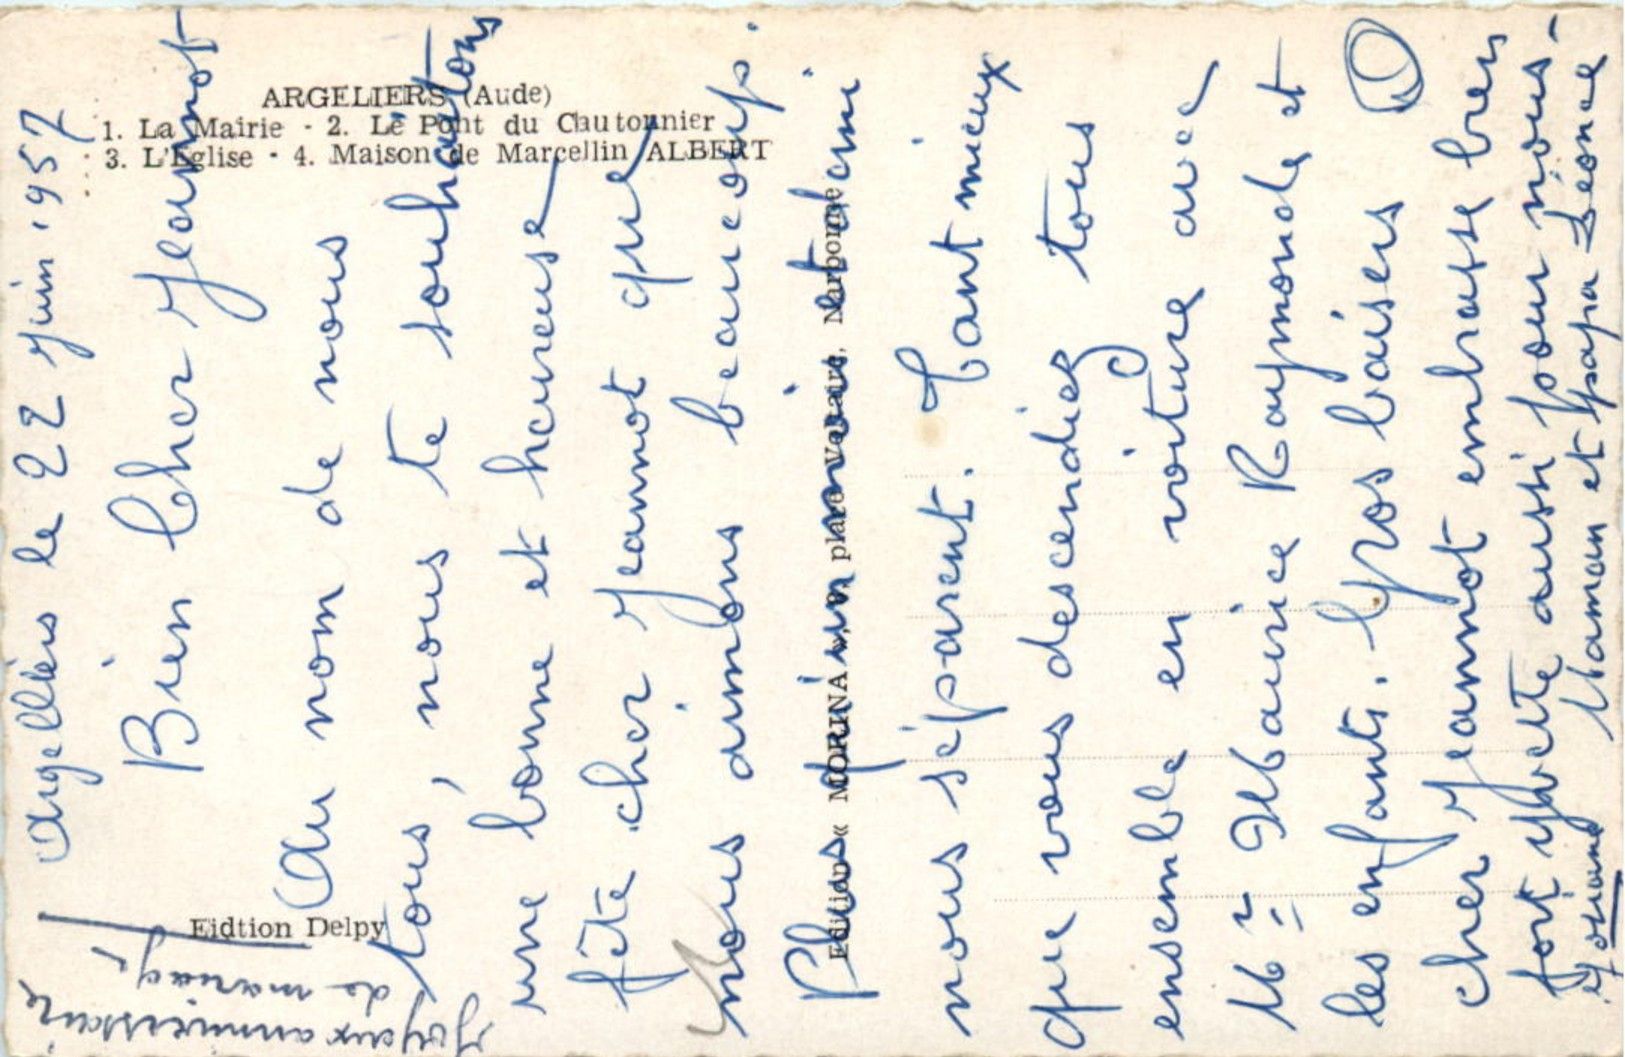 ARGELIERS (Aude)
1. La Mairie - 2. Le Pont du Cautonnier
3. L'Eglise - 4. Maison de Marcellin ALBERT
Eidtion Delpy
Edition « MORINA », place Narbonne
Argelliers le 22 Juin 1957
Bien Cher Jeannot
Au nom de nous
tous, nous te souhaitons
une bonne et heureuse
fête cher Jeannot que
nous aimons beaucoup.
Plus qu'un mois et demi
nous séparent. Tant mieux
que vous descendiez tous
ensemble en voiture avec
Mr Maurice Raymonde et
les enfants. Gros baisers
cher Jeannot embrasse bien
fort Yvette aussi pour nous -
Maman et Papa Léonce
Joyeux anniversaire
de mariage